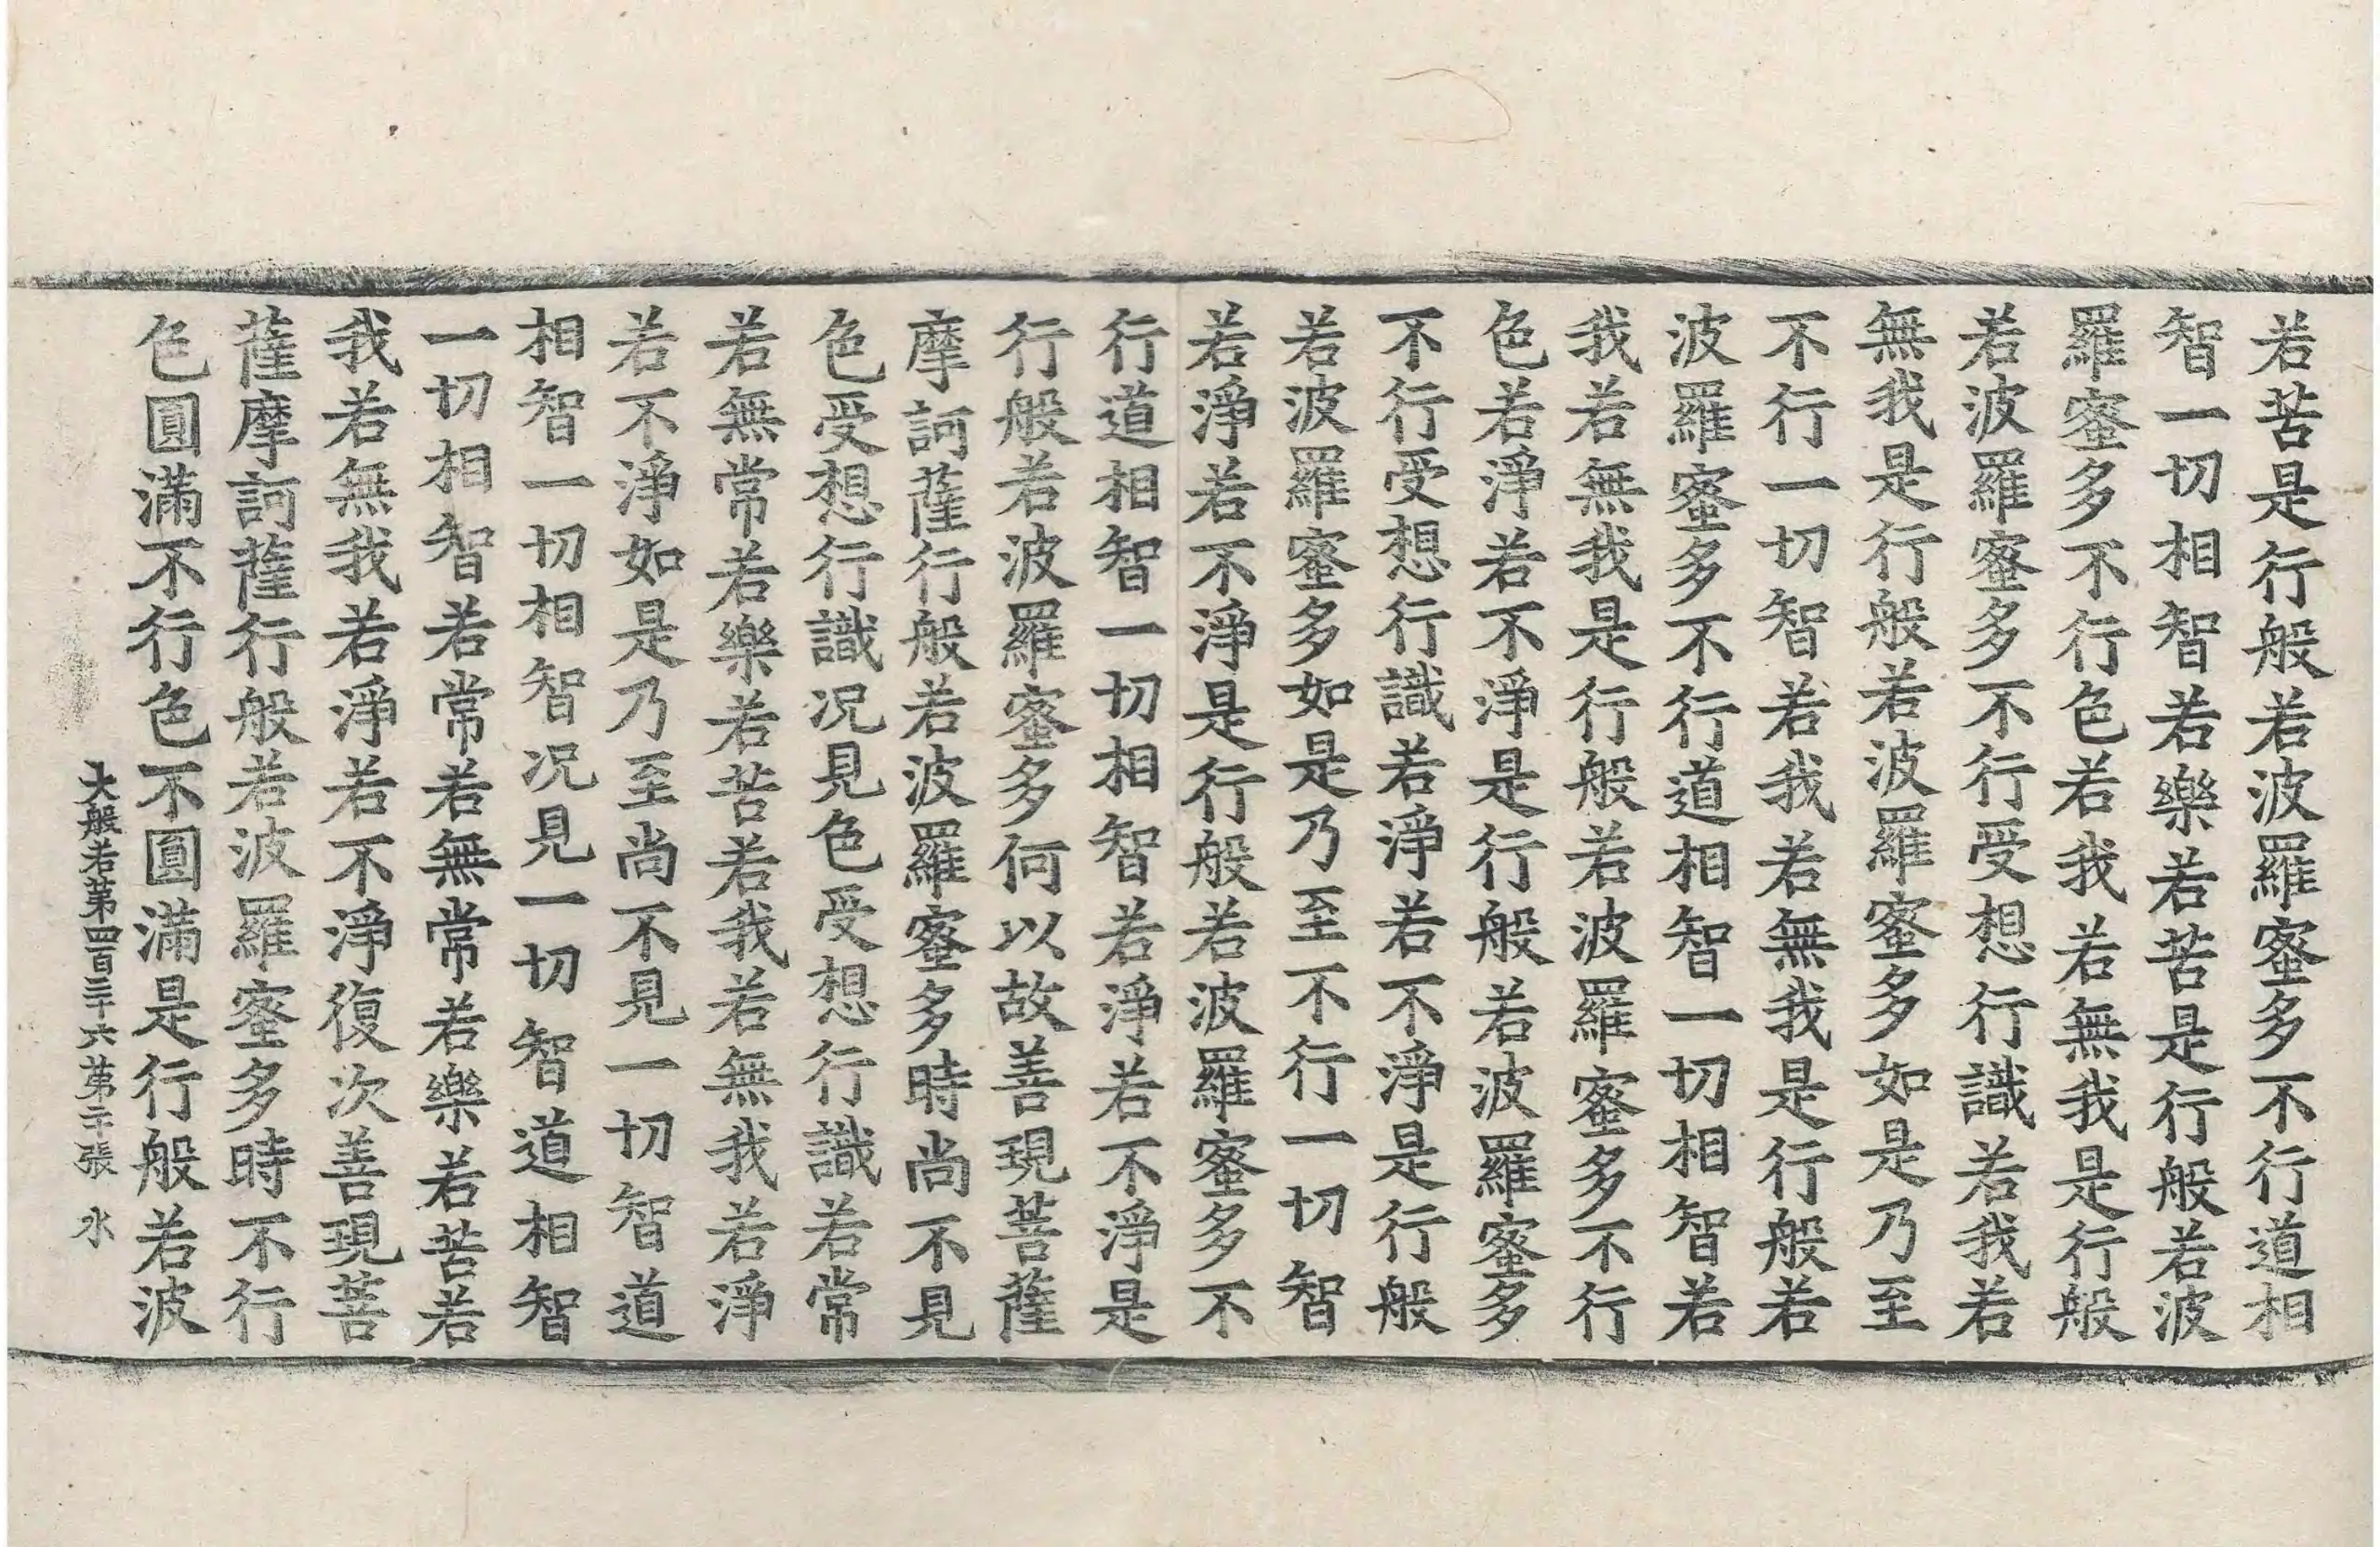 若苦是行般若波羅蜜多不行道相
智一切相智若樂若苦是行般若波
羅蜜多不行色若我若無我是行般
若波羅蜜多不行受想行識若我若
無我是行般若波羅蜜多如是乃至
不行一切智若我若無我是行般若
波羅蜜多不行道相智一切相智若
我若無我是行般若波羅蜜多不行
色若淨若不淨是行般若波羅蜜多
不行受想行識若淨若不淨是行般
若波羅蜜多如是乃至不行一切智
若淨若不淨是行般若波羅蜜多不
行道相智一切相智若淨若不淨是
行般若波羅蜜多何以故善現菩薩
摩訶薩行般若波羅蜜多時尚不見
色受想行識况見色受想行識若常
若無常若樂若苦若我若無我若淨
若不淨如是乃至尚不見一切智道
相智一切相智况見一切智道相智
一切相智若常若無常若樂若苦若
我若無我若淨若不淨復次善現菩
薩摩訶薩行般若波羅蜜多時不行
色圓滿不行色不圓滿是行般若波
大般若第四百三十六第二十張 水